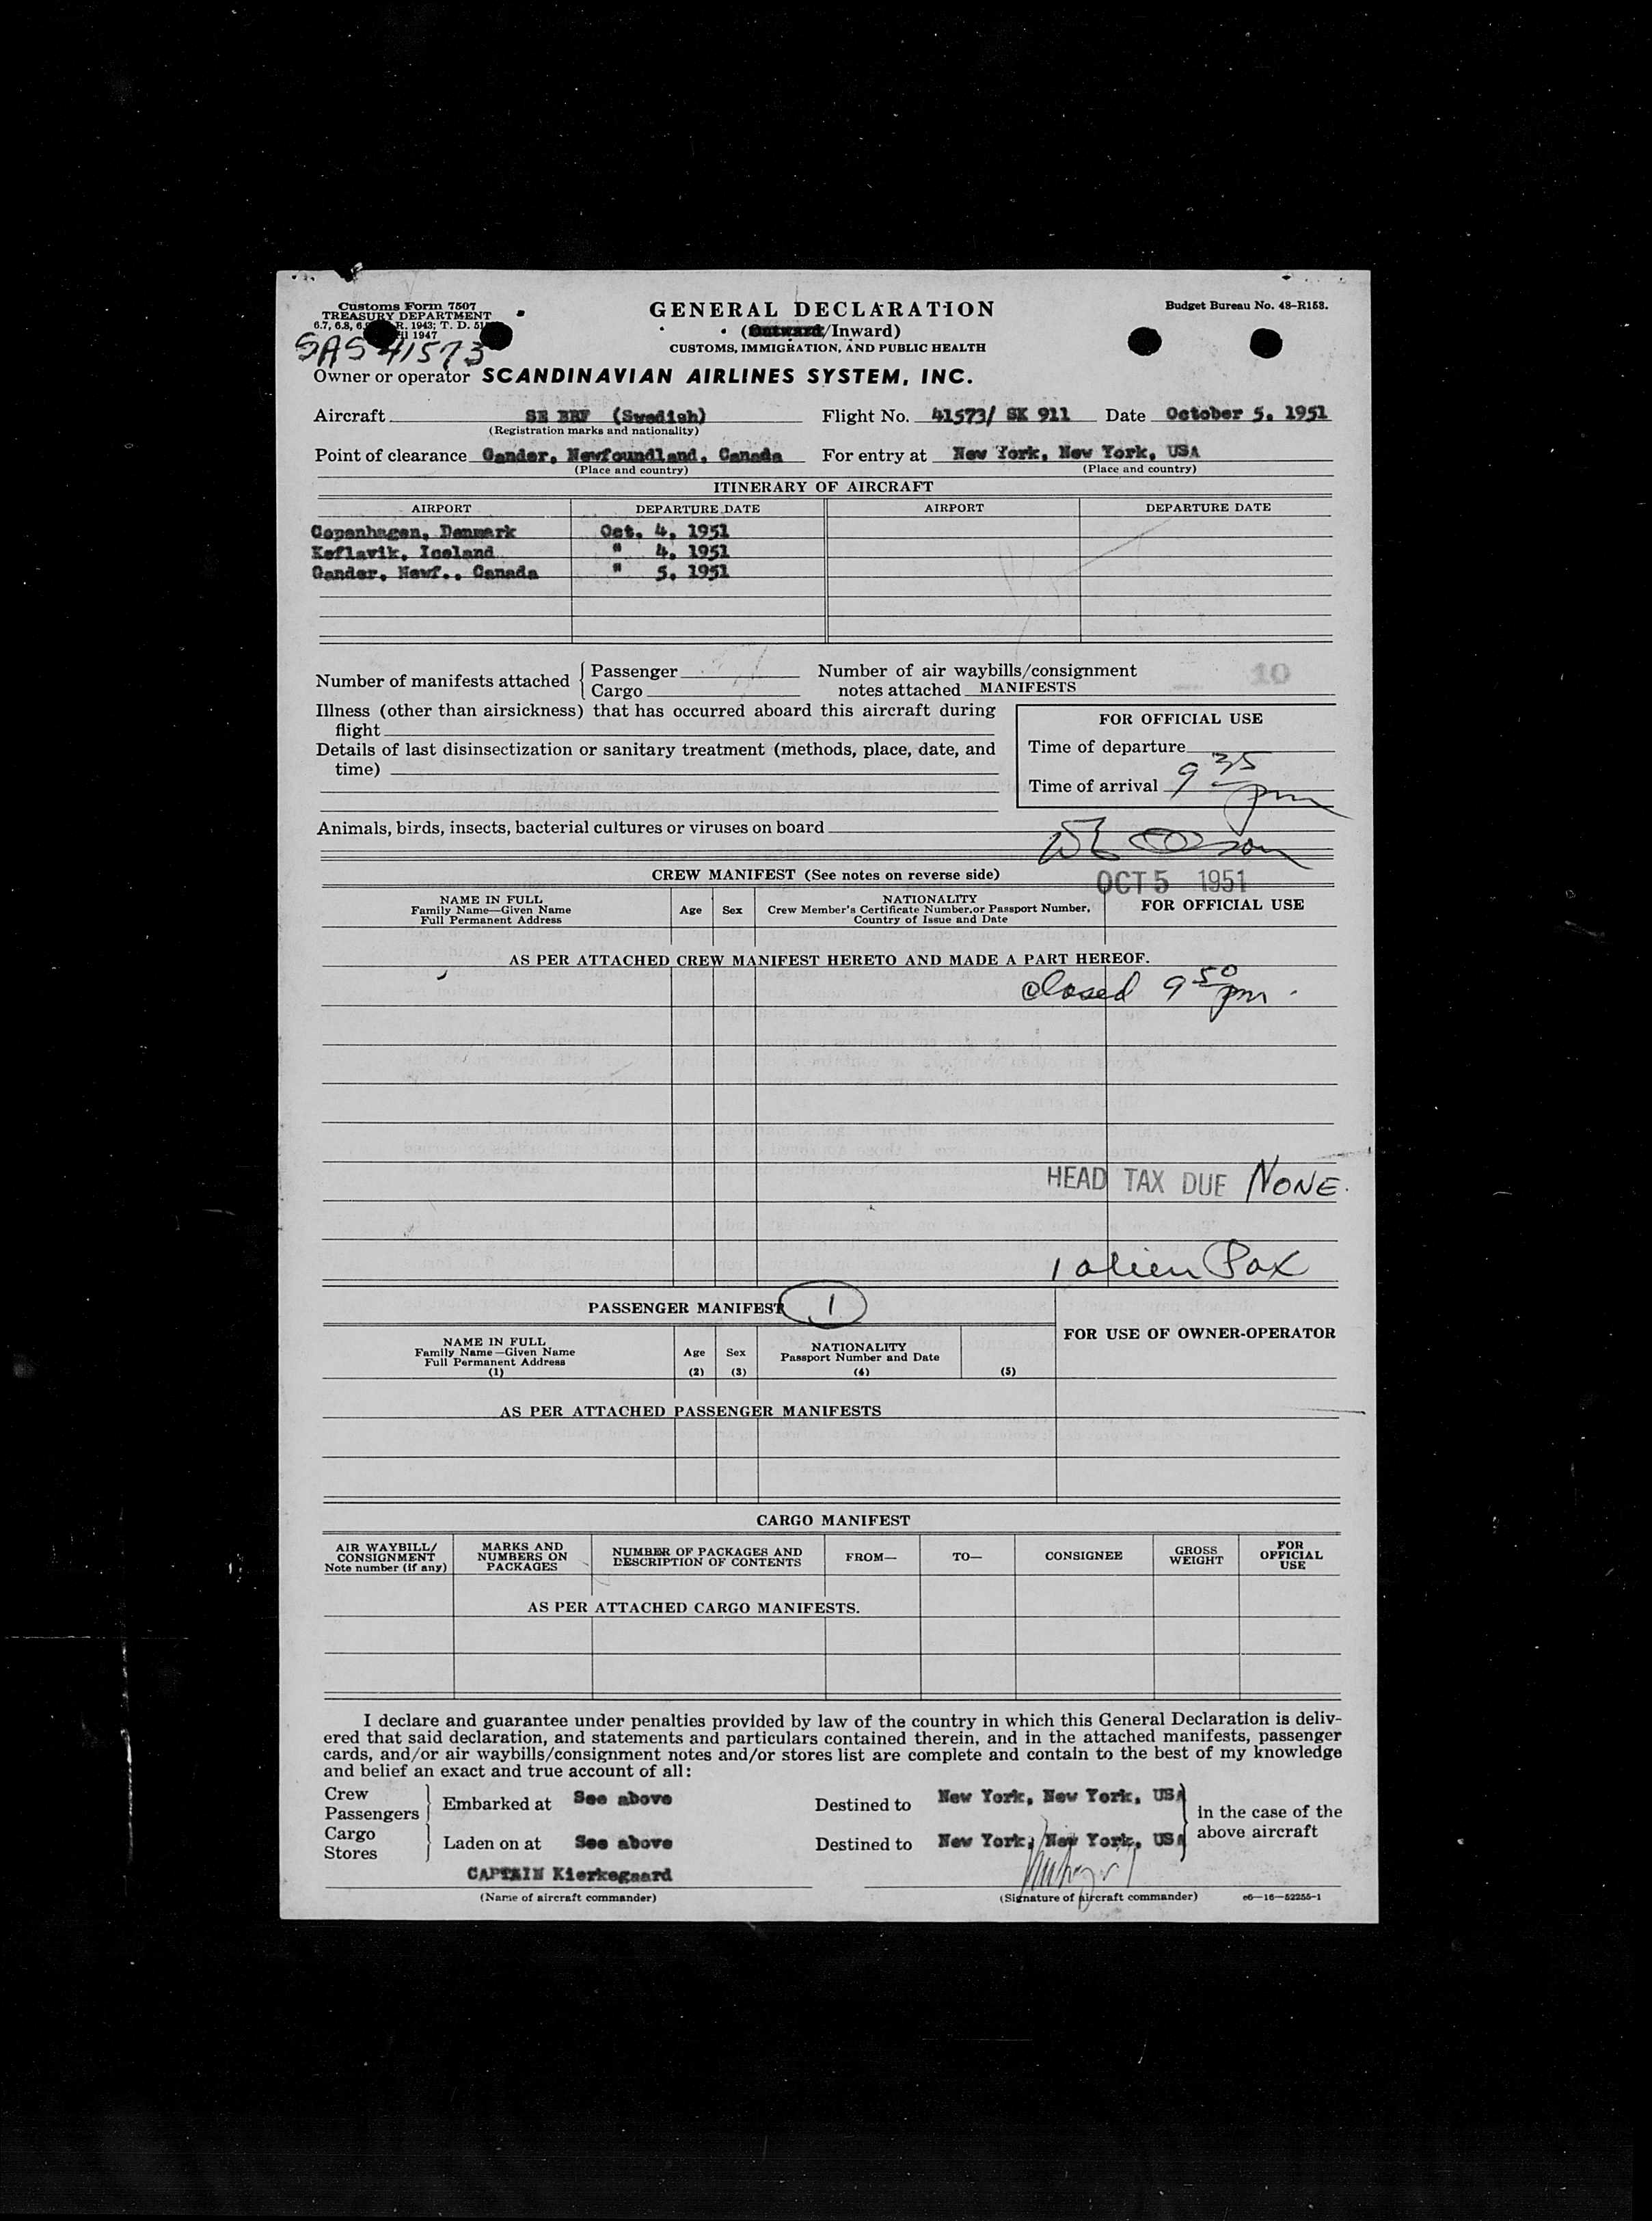 Customs Form 7507
TREASURY DEPARTMENT
6.7, 6.8, R. 1943; T. D.
1947
SAS 41573
GENERAL DECLARATION
(Outward/Inward)
CUSTOMS, IMMIGRATION, AND PUBLIC HEALTH
Budget Bureau No. 48-R158.
Owner or operator SCANDINAVIAN AIRLINES SYSTEM, INC.
Aircraft SE (Swedish) Flight No. 41573/ SK 911 Date October 5, 1951
(Registration marks and nationality)
Point of clearance Gander, Newfoundland, Canada For entry at New York, New York, USA
(Place and country) (Place and country)
ITINERARY OF AIRCRAFT
AIRPORT DEPARTURE DATE AIRPORT DEPARTURE DATE
Copenhagen, Denmark Oct. 4, 1951
Keflavik, Iceland " 4, 1951
Gander, Newf., Canada " 5, 1951
Number of manifests attached { Passenger
Cargo
Number of air waybills/consignment
notes attached MANIFESTS
10
Illness (other than airsickness) that has occurred aboard this aircraft during
flight
Details of last disinsectization or sanitary treatment (methods, place, date, and
time)
FOR OFFICIAL USE
Time of departure
Time of arrival 9 35 pm
Animals, birds, insects, bacterial cultures or viruses on board
OCT 5 1951
CREW MANIFEST (See notes on reverse side)
NAME IN FULL
Family Name—Given Name
Full Permanent Address
Age Sex
NATIONALITY
Crew Member's Certificate Number, or Passport Number,
Country of Issue and Date
FOR OFFICIAL USE
AS PER ATTACHED CREW MANIFEST HERETO AND MADE A PART HEREOF.
closed 9 50 pm.
HEAD TAX DUE NONE.
1 alien Pax
PASSENGER MANIFEST 1
NAME IN FULL
Family Name—Given Name
Full Permanent Address
(1)
Age
(2)
Sex
(3)
NATIONALITY
Passport Number and Date
(4)
(5)
FOR USE OF OWNER-OPERATOR
AS PER ATTACHED PASSENGER MANIFESTS
CARGO MANIFEST
AIR WAYBILL/
CONSIGNMENT
Note number (if any)
MARKS AND
NUMBERS ON
PACKAGES
NUMBER OF PACKAGES AND
DESCRIPTION OF CONTENTS
FROM—
TO—
CONSIGNEE
GROSS
WEIGHT
FOR
OFFICIAL
USE
AS PER ATTACHED CARGO MANIFESTS.
I declare and guarantee under penalties provided by law of the country in which this General Declaration is deliv-
ered that said declaration, and statements and particulars contained therein, and in the attached manifests, passenger
cards, and/or air waybills/consignment notes and/or stores list are complete and contain to the best of my knowledge
and belief an exact and true account of all:
Crew
Passengers } Embarked at See above Destined to New York, New York, USA
Cargo
Stores } Laden on at See above Destined to New York, New York, USA
in the case of the
above aircraft
CAPTAIN Kierkegaard
(Name of aircraft commander) (Signature of aircraft commander) c6—16—52255-1